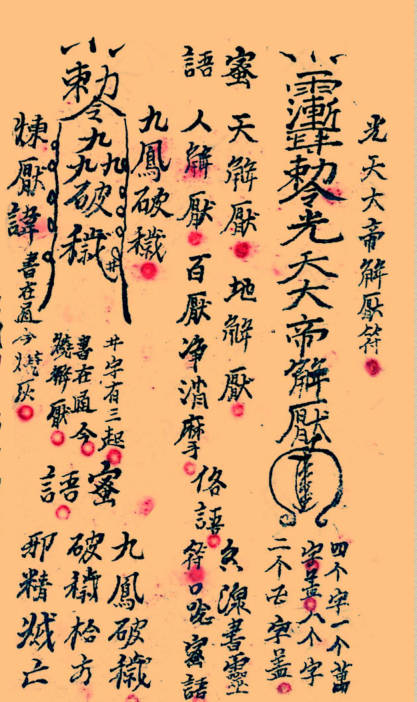 光天大帝解厭符
敕令光天大帝解厭
四个字一个蓋
字蓋八个字
二个字蓋
蜜語
天解厭地解厭
人解厭百厭净消
俗語
書靈
符口唸蜜語
九鳳破穢
敕令九九九破穢
井字有三起
書在通今
燒解厭
煉厭諱書在通今燒灰
蜜語
九鳳破穢
破穢十方
邪精滅亡